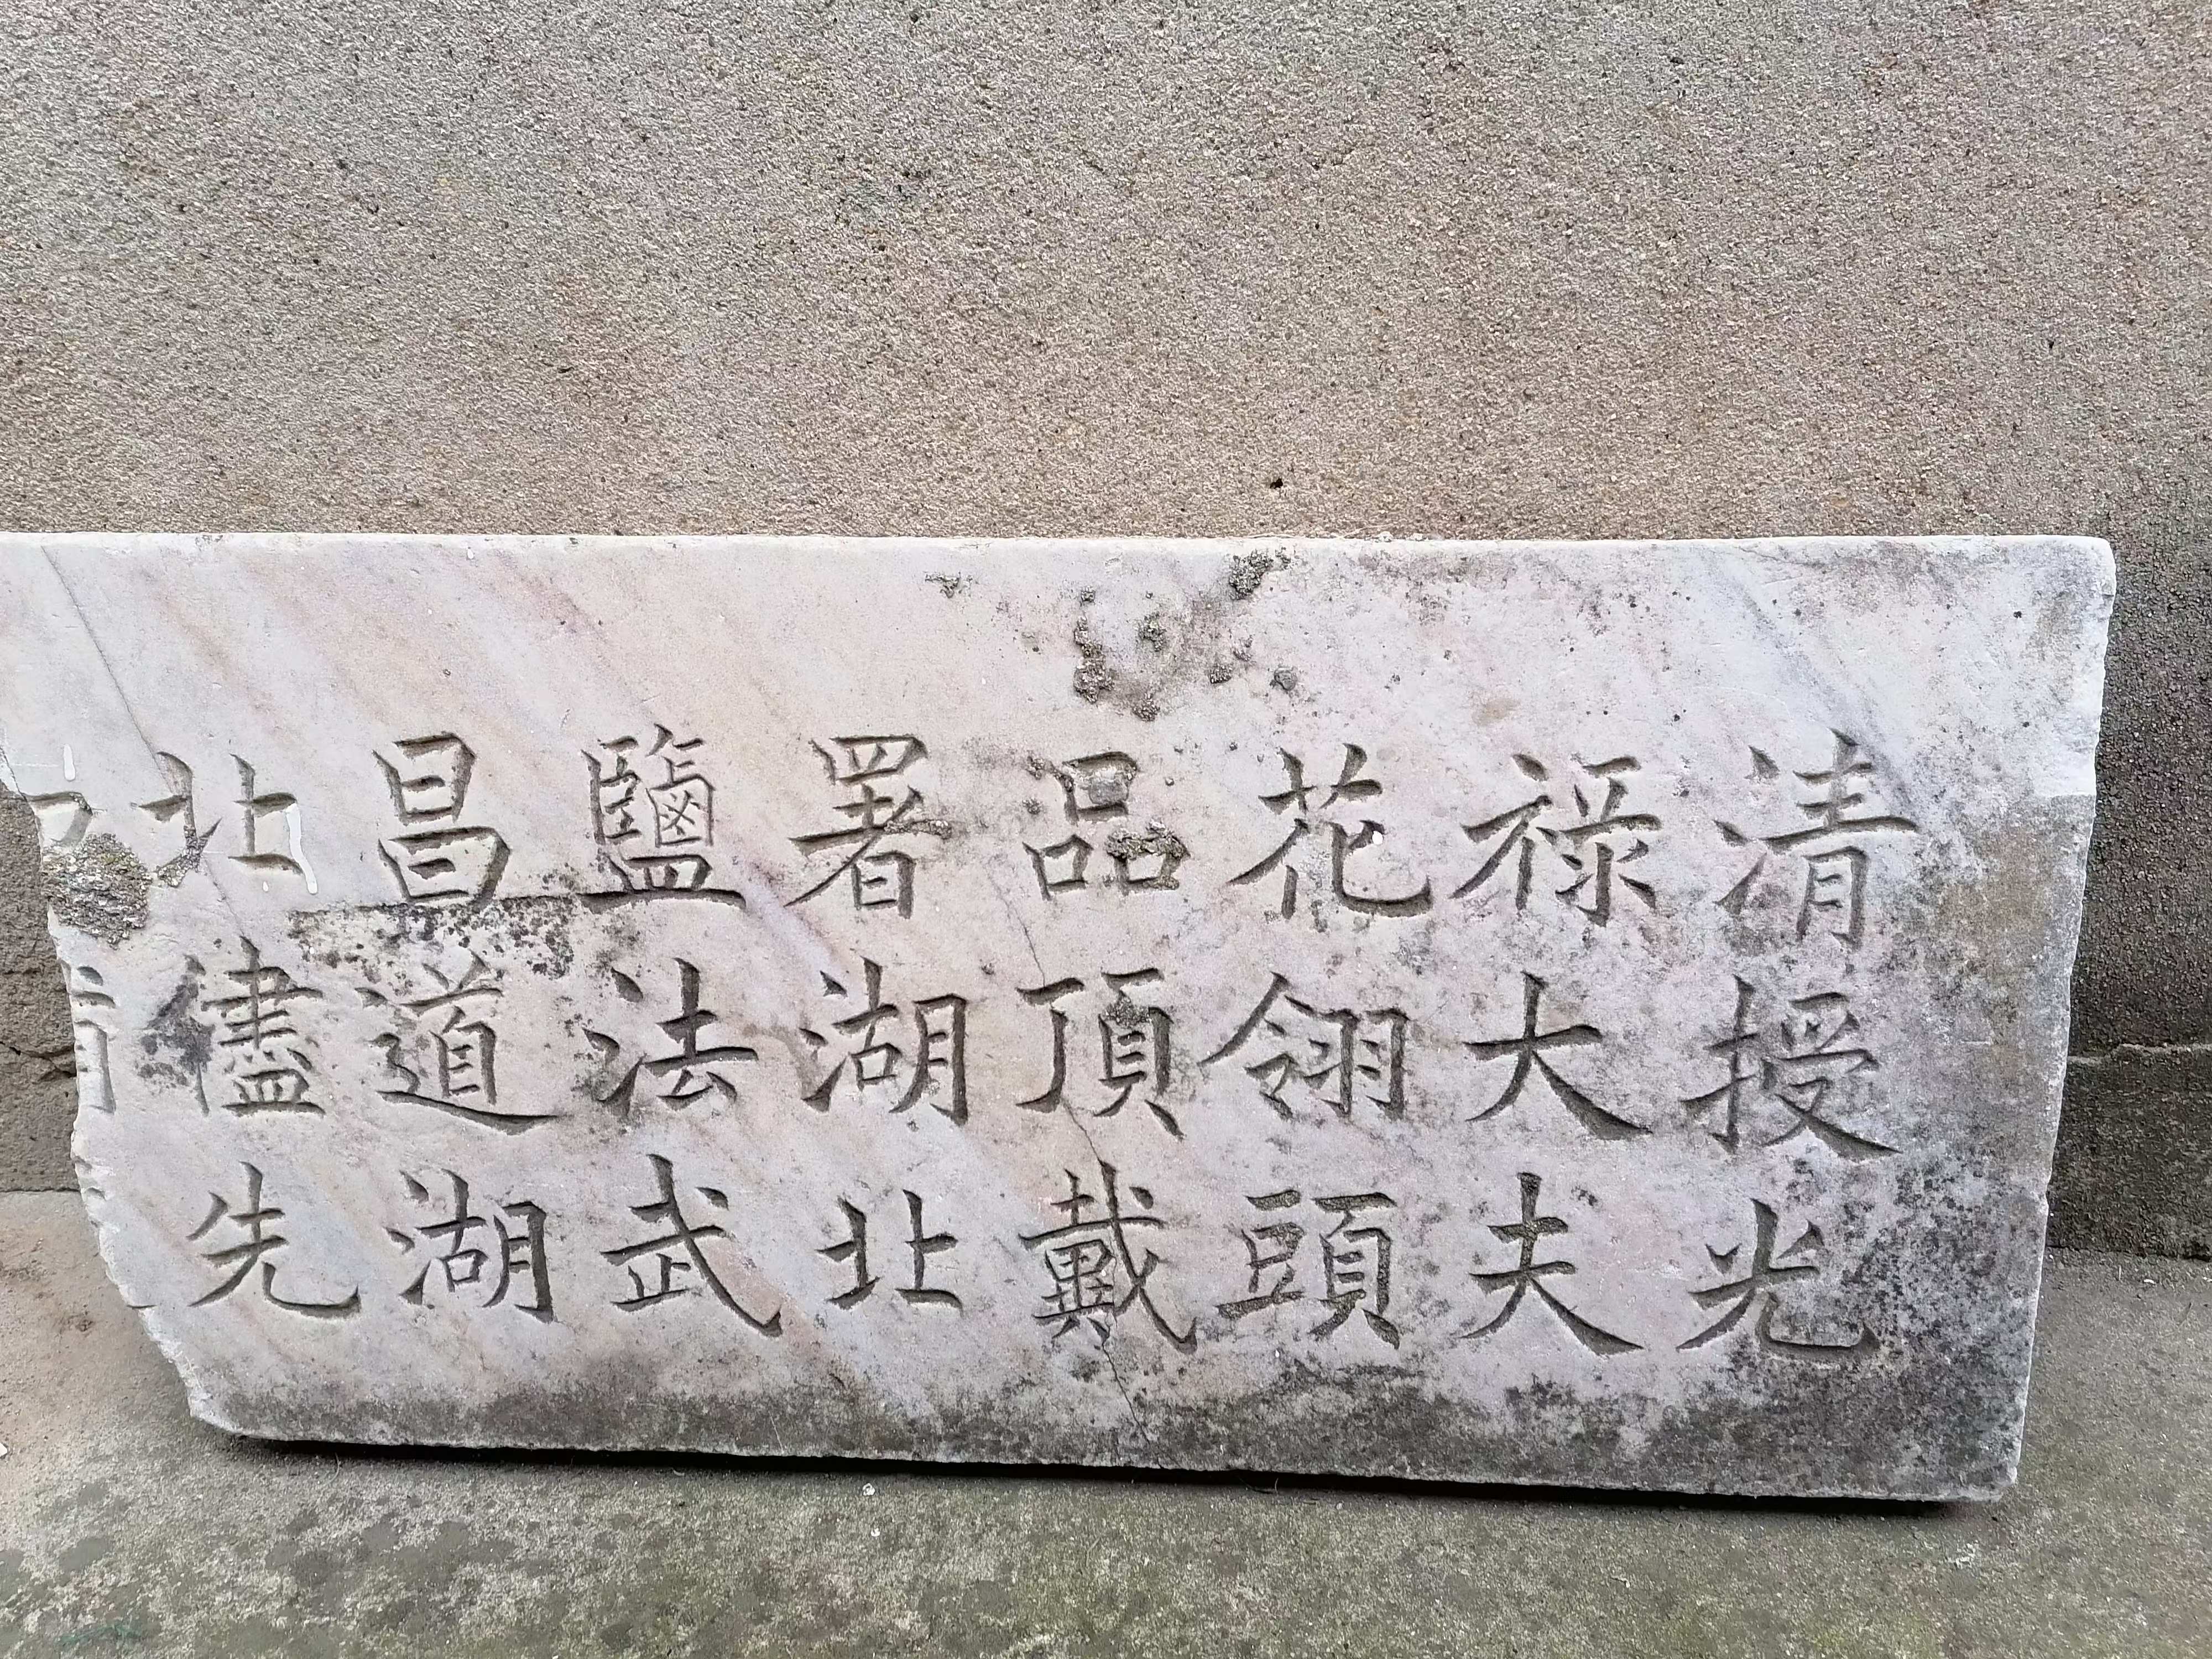 清授光
祿大夫
花翎頭
品頂戴
署湖北
鹽法武
昌道湖
北儘先